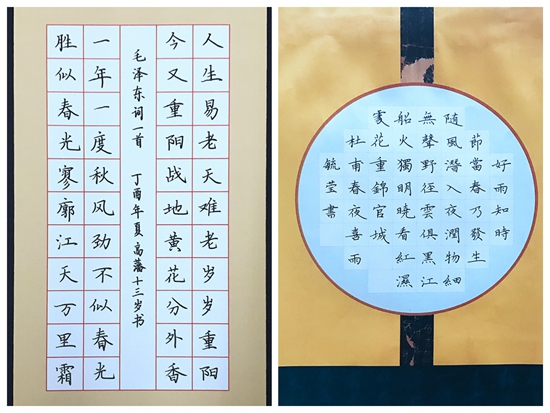 人生易老天难老岁岁重阳
今又重阳战地黄花分外香
毛泽东词一首 丁酉年夏高十三岁书
一年一度秋风劲不似春光
胜似春光寥廓江天万里霜
好雨知時
節當春乃發生
随風潛入夜潤物細
無聲野徑雲俱黑江
船火獨明曉看紅濕
處花重錦官城
杜甫春夜喜雨
毓莹書